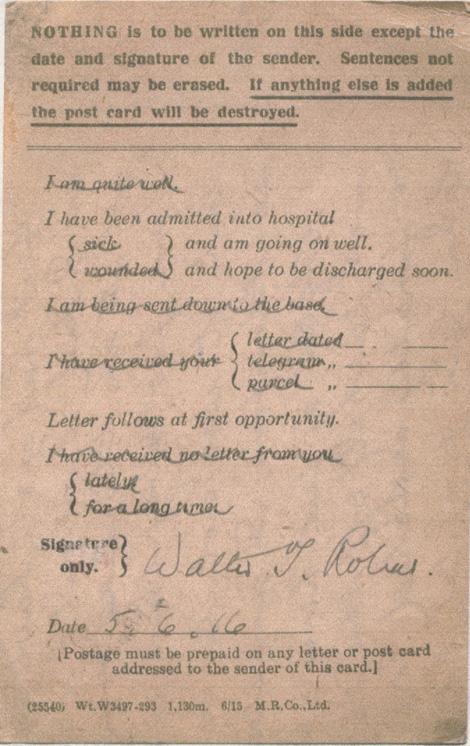 NOTHING is to be written on this side except the
date and signature of the sender. Sentences not
required may be erased. If anything else is added
the post card will be destroyed.
I am quite well.
I have been admitted into hospital
{ sick } and am going on well.
{ wounded } and hope to be discharged soon.
I am being sent down to the base
I have received your { letter dated
telegram ,,
parcel ,,
Letter follows at first opportunity.
I have received no letter from you
{ lately
{ for a long time.
Signature only. } Walter T.
Date 5.6.16
[Postage must be prepaid on any letter or post card
addressed to the sender of this card.]
(25540) Wt.W3497-293 1,130m. 6/15 M.R.Co.,Ltd.